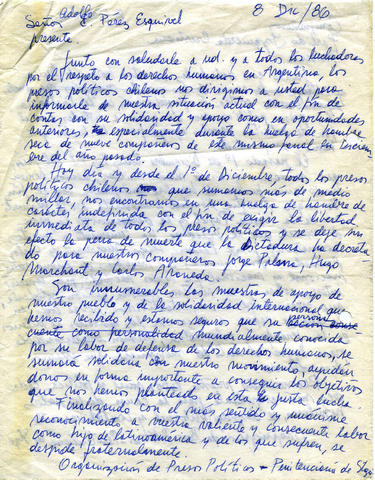 8 Dic/86
Adolfo
Señor Pérez Esquivel
presente.
Junto con saludarle a ud. y a todos los luchadores
por el respeto a los derechos humanos en Argentina, los
presos políticos chilenos nos dirigimos a usted para
informarle de nuestra situación actual con el fin de
contar con su solidaridad y apoyo como en oportunidades
anteriores, especialmente durante la huelga de hambre
seca de nueve compañeros de este mismo penal en Diciem-
bre del año pasado.
Hoy día y desde el 1º de Diciembre, todos los presos
políticos chilenos que sumamos más de medio
millar, nos encontramos en una huelga de hambre de
carácter indefinida con el fin de exigir la libertad
inmediata de todos los presos políticos y se deje sin
efecto la pena de muerte que la dictadura ha decreta
do para nuestros compañeros Jorge Palma, Hugo
Marchant y Carlos Araneda.
Son innumerables las muestras de apoyo de
nuestro pueblo y de la solidaridad internacional que
hemos recibido y estamos seguros que su persona conse
cuente como personalidad mundialmente conocida
por su labor de defensa de los derechos humanos, se
sumará solidaria con nuestro movimiento, ayudán
donos en forma importante a conseguir los objetivos
que nos hemos planteados en esta la justa lucha.
Finalizando con el más sentido y unánime
reconocimiento a vuestra valiente y consecuente labor
como hijo de latinoamérica y de los que sufren, se
despide fraternalmente.
Organización de Presos Políticos - Penitenciaria de Stgo